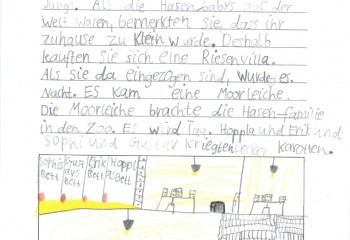 Jungs. Als die Hasenbabys auf der
Welt waren, bemerkten sie, dass ihr
zuhause zu klein wurde. Deshalb
kauften sie sich eine Riesenvilla.
Als sie da eingezogen sind, wurde es
Nacht. ES kam eine Moorleiche.
Die Moorleiche brachte die Hasen-familie
in den Zoo. Es wird Tag. Hoppla und Erik und
Sophi und Gustav kriegten lecker karotten.
Sophis Bett
Gustavs Bett
Eriks Bett
Hoppls Bett